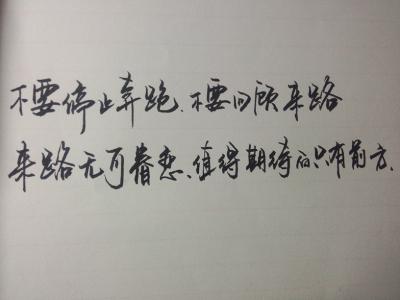 不要停止奔跑、不要回顾来路
来路无可眷恋、值得期待的只有前方.